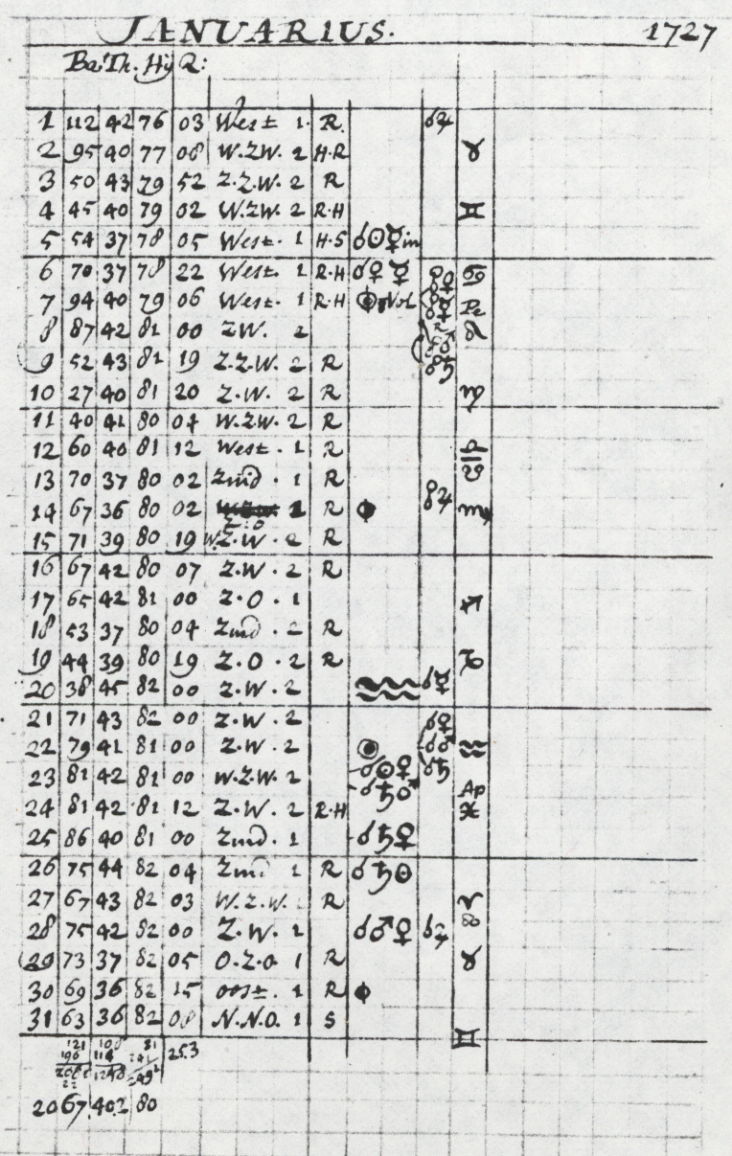 JANUARIUS. 1727
Ba: Th. Hy Q:
1 112 42 76 03 West 1 R. ☌♃
2 95 40 77 08 W.ZW. 2 H·R ♉
3 50 43 79 52 Z.Z.W. 2 R
4 45 40 79 02 W.ZW. 2 R·H ♊
5 54 37 78 05 West. 1 H·S ☌☉☿ in
6 70 37 78 22 West. 1 R·H ☌♀☿ ♋
7 94 40 79 06 West. 1 R·H Pe
8 87 42 81 00 ZW. 2 ♌
9 52 43 81 19 Z.Z.W. 2 R ☍♄
10 27 40 81 20 Z.W. 2 R ♍
11 40 41 80 04 W.Z.W. 2 R
12 60 40 81 12 West. 1 R ♎
13 70 37 80 02 Zuid. 1 R ☋
14 67 36 80 02 Z·O 1 R ☍♃ ♏
15 71 39 80 19 W.Z.W. 2 R
16 67 42 80 07 Z.W. 2 R
17 65 42 81 00 Z.O. 1 ♐
18 53 37 80 04 Zuid. 2 R
19 44 39 80 19 Z.O. 2 R ♑
20 38 45 82 00 Z.W. 2 ☌☿
21 71 43 82 00 Z.W. 2 ☌♀
22 79 41 81 00 Z.W. 2 ☌♂ ♒
23 81 42 81 00 W.Z.W. 2 ☌☉♀ ☌♄
24 81 42 81 12 Z.W. 2 R·H ☌♄♂ Ap ♓
25 86 40 81 00 Zuid. 1 ☌♄♀
26 75 44 82 04 Zuid 1 R ☌♄☉
27 67 43 82 03 W.Z.W. R ♈
28 75 42 82 00 Z.W. 1 ☌♂♀ ☌♃ ☊
29 73 37 82 05 O.Z.O 1 R ♉
30 69 36 82 15 oost. 1 R
31 63 36 82 08 N.N.O. 1 S ♊
121 108 81
196 114 241 25.3
2067 40.2 80